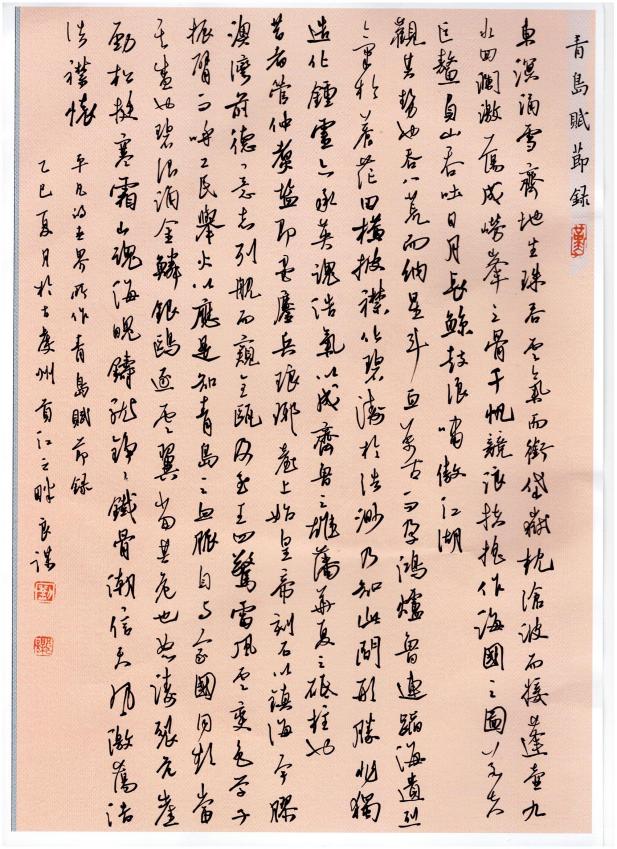 青島賦節録
東溟涌雪齊地生珠吞雲氣而銜岱嶽枕滄波而接蓬壺九
水回瀾激蕩成嶗峯之骨千帆競浪扶搖作海國之圖
巨鰲負山吞吐日月長鯨鼓浪嘯傲江湖
觀其勢也吞八荒而納星斗亘萬古而孕鴻爐魯連蹈海遺烈
於蒼茫田橫披襟以碧濤於浩渺乃知此間形勝非獨
造化鍾靈亦承英魂浩氣以成齊魯之雄藩華夏之砥柱也
昔者管仲煮鹽即墨鏖兵琅琊臺上始皇帝刻石以鎮海
澳灣前德人列艦而窺金甌及至五四驚雷風雲變色學子
振臂而呼工民舉火以應是知青島之血脈自与家國同頻當
其盛也碧浪涌金鱗銀鷗逐雲翼當其危也怒濤裂危崖
勁松挺寒霜山魂海魄鑄就錚錚鐵骨潮信天風激蕩浩
浩襟懷
平凡的世界所作青島賦節録
乙巳夏月於古慶州貢江之畔良謀